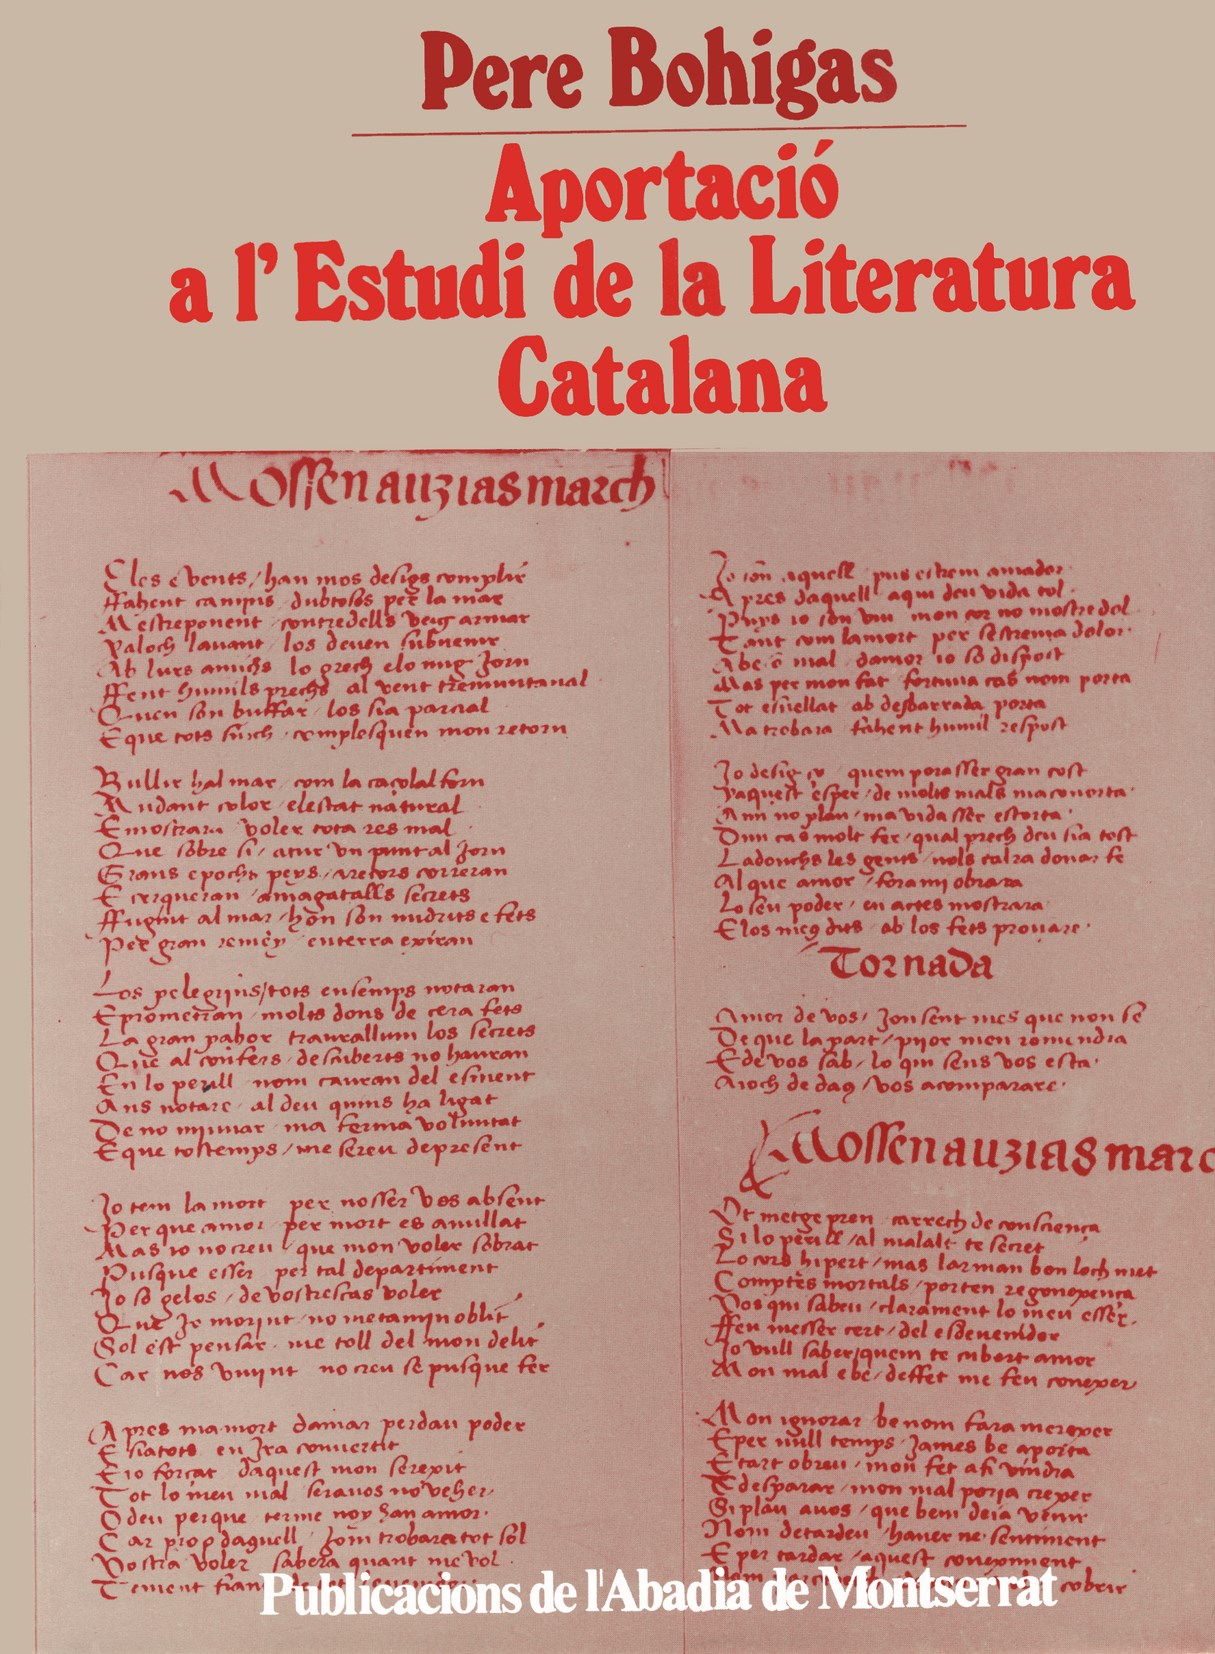 Pere Bohigas
Aportació
a l'Estudi de la Literatura
Catalana
Mossen auzias march
Eles e vents / han mos desigs complir
ffahent camins dubtosos per la mar
Mestre ponent contredells veig armar
Xaloch lauant los deuen subuenir
Ab lurs amichs lo grech elo mig Jorn
ffent humils prechs al vent tremuntanal
Quen son buffar los sia parcial
E que tots sinch complesquen mon retorn
Bullir hal mar com la caçolal forn
Mudant color elestat natural
E mostrara voler tota res mal
Que sobre si / atur vn punt al Jorn
Grans e pochs peys / arecors correran
E cerqueran amagatalls secrets
ffugint al mar / hon son nudrits e fets
Per gran remey enterra exiran
Los pelegrins / tots ensemps votaran
E prometran molts dons de cera fets
La gran pahor traurallum los secrets
Que al confers descuberts no hauran
En lo perill nom cauran del esment
Ans votare al deu quins ha ligat
De no minuar ma ferma voluntat
E que tostemps / me sereu de present
Jo tem la mort per nosser vos absent
Per que amor per mort es anullat
Mas io no creu que mon voler sobrat
Pusque esser per tal departiment
Jo so gelos / de vostr escas voler
Que Jo morint no meta min oblit
Sol est pensar me toll del mon delit
Car nos viuint no creu se pusque fer
Apres ma mort damar perdau poder
E sia tots en Jra conuertit
E io forçat daquest mon ser exit
Tot lo meu mal sera uos no veher
O deu perque terme noy ha en amor
Car prop daquell Jom trobara tot sol
Vostra voler sabera quant me vol
Tement
Jo son aquell pus estrem amador
Apres daquell aqui deu vida tol
Puys io son viu mon cor no mostre dol
Tant com la mort per sestrema dolor
A be o mal damor io so dispost
Mas per mon fat fortuna cas nom porta
Tot esuellat ab desbarrada porta
Ma trobara fahent humil respost
Jo desig ço quem pora sser gran cost
Yaquest esper de molts mals maconorta
A mi no plau ma vida sser estorta
Dun cas molt fer qual prech deu sia tost
Ladonchs les gents nols calra donar fe
Al que amor fora mi obrara
Lo seu poder en actes mostrara
E los meus dits ab los fets prouare
Tornada
Amor de vos / Jon sent mes que non se
De que la part pijor men romandra
E de vos sab lo qui sens vos esta
A joch de daus / vos acomparare
Mossen auzias marc
Si lo perill / al malalt te secret
Lo cors hi pert / mas larman bon loch met
Comptes mortals / porten regonexença
Vos qui sabeu / clarament lo meu esser
ffeu messer cert / del esdeuenidor
Jo vull saber / quem te cubert amor
Mon mal e be / deffet me feu conexer
Mon ignorar be nom fara merexer
E per null temps James be aporta
E tart obreu mon fet a fi vindra
E desparar mon mal poria crexer
Si plau auos / que bem deia venir
Nom detardeu hauer ne sentiment
E per tardar / aquest coneximent
cobrir
Publicacions de l'Abadia de Montserrat